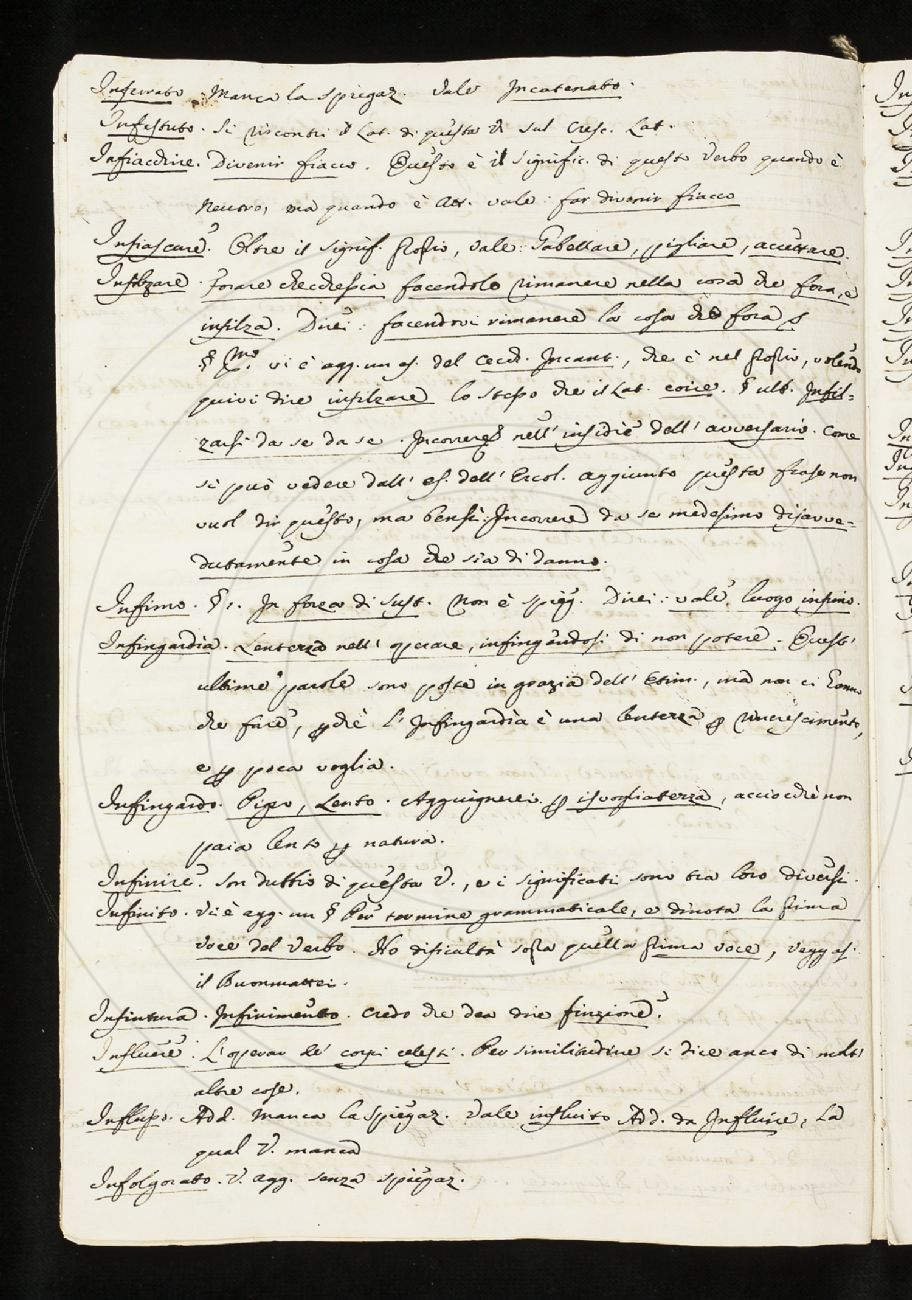 Inferrato. Manca la spiegaz. Vale Incatenato.
Infistuto. Si riscontri il Lat. di questa V. sul Cresc. Lat.
Infiacchire. Divenir fiacco. Questo è il signific. di questo Verbo quando è
Neutro, ma quando è Att. vale: far divenir fiacco
Infiascare. Oltre il signif. propio, vale: Gabellare, pigliare, accettare.
Infilzare. Forare checchessia facendolo rimanere nella cosa che fora, e
infilza. Direi: facendovi rimanere la cosa che fora
§ vi è agg. un es. del Cecch. Incant., che è nel propio, volendo
quivi dire infilzare lo stesso che il Lat. coire. § ult. Infil=
zarsi da se da se. Incorrere nell' insidie dell' avversario. Come
si può vedere dall' es. dell' Ercol. aggiunto questa frase non
vuol dir questo, ma bensì: Incorrere da se medesimo disavve=
dutamente in cosa che sia di danno.
Infimo. § 1. In forza di sust. Non è spieg. Direi: vale luogo infimo.
Infingardia. Lentezza nell' operare, infingendosi di non potere. Quest'
ultime parole sono poste in grazia dell' Etim., ma non ci hanno
che fare, pchè l' Infingardia è una lentezza p rincrescimento,
e p poca voglia.
Infingardo. Pigro, Lento. Aggiugnerei p isvogliatezza, acciocchè non
paia lento p natura.
Infinire. Son dubbio di questa V., e i significati sono tra loro diversi.
Infinito. Vi è agg. un § Per termine grammaticale, e dinota la prima
voce del Verbo. Ho dificultà sopra quella prima voce, vegg asi
il Buonmattei.
Infintura. Infinimento. Credo che dea dire finzione.
Influere. L'operar de' corpi celesti. Per similitudine si dice anco di molt'
altre cose.
Influsso. Add. Manca la spiegaz. Vale influito Add. da Influire, la
qual V. manca
Infolgorato. V. agg. senza spiegaz.